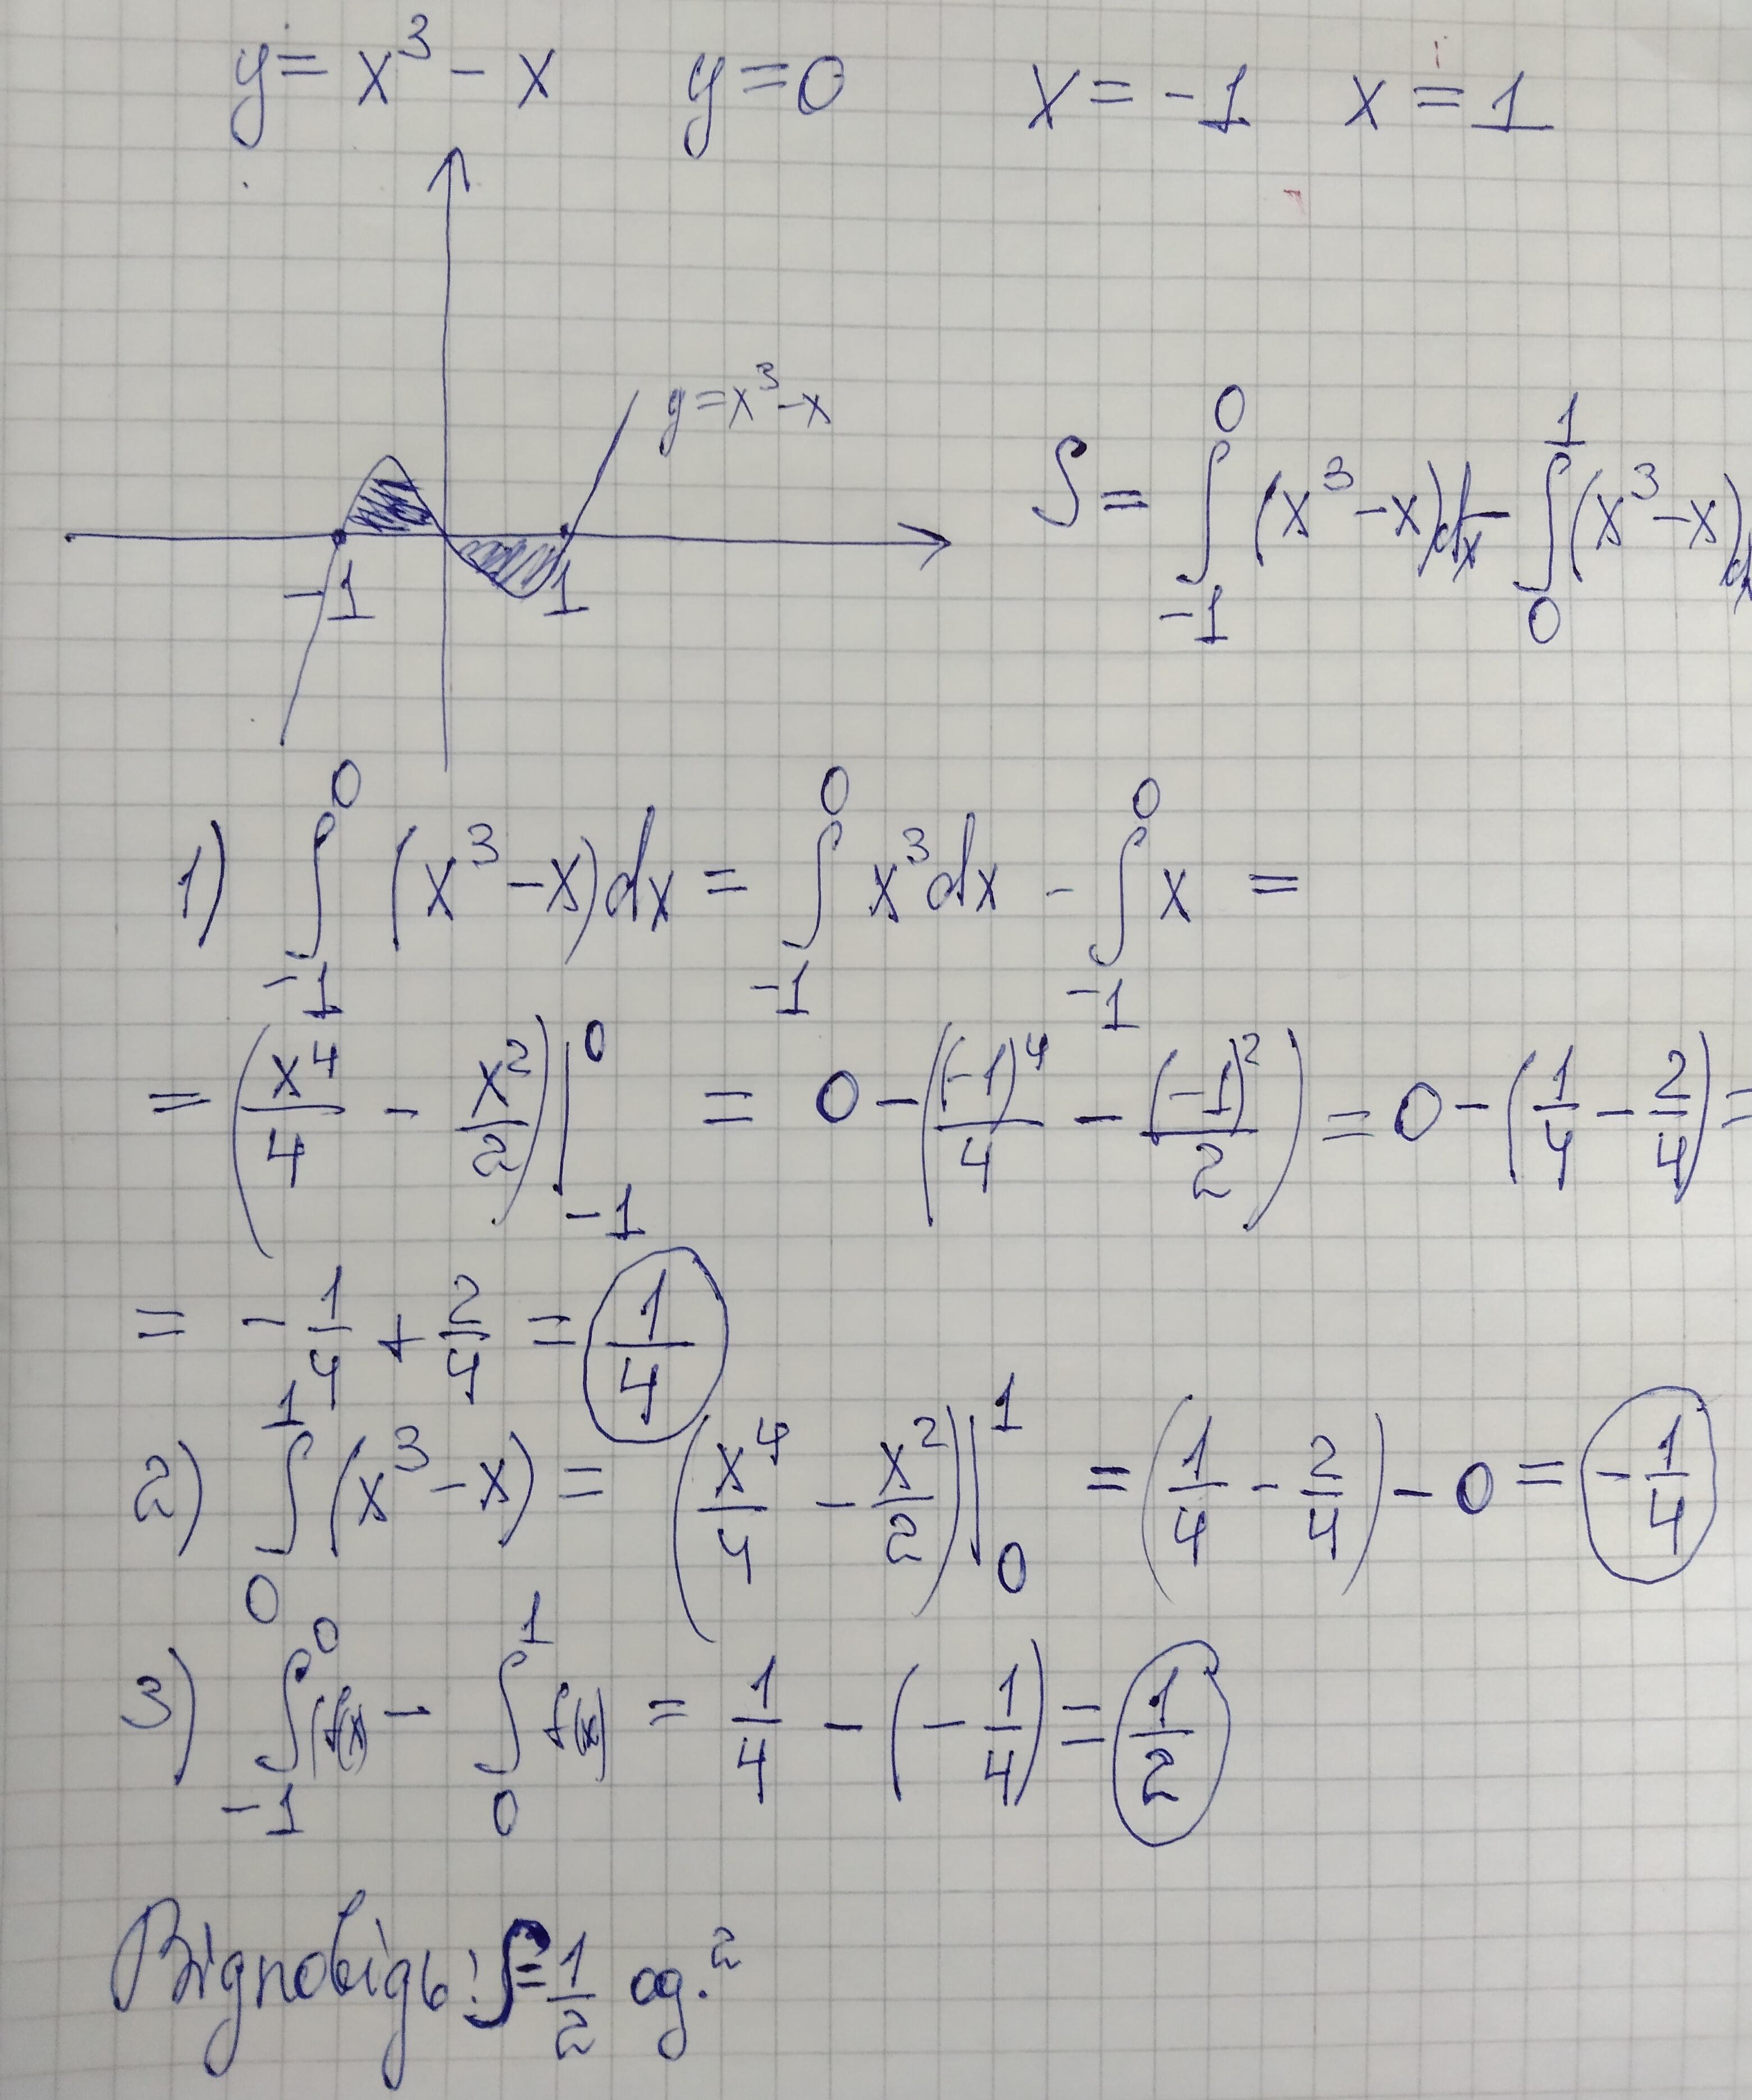 y = x³ - x   y = 0   x = -1   x = 1
y = x³ - x
-1   1
S = ∫₋₁⁰ (x³ - x)dx - ∫₀¹ (x³ - x)dx
1) ∫₋₁⁰ (x³ - x)dx = ∫₋₁⁰ x³dx - ∫₋₁⁰ x =
= (x⁴/4 - x²/2)|₋₁⁰ = 0 - ((-1)⁴/4 - (-1)²/2) = 0 - (1/4 - 2/4) =
= - 1/4 + 2/4 = 1/4
2) ∫₀¹ (x³ - x) = (x⁴/4 - x²/2)|₀¹ = (1/4 - 2/4) - 0 = -1/4
3) ∫₋₁⁰ f(x) - ∫₀¹ f(x) = 1/4 - (-1/4) = 1/2
Відповідь: S = 1/2 од.²